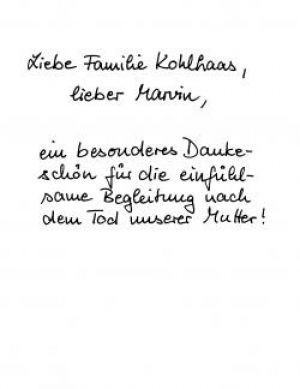 Liebe Familie Kohlhaas,
lieber Marvin,
ein besonderes Danke-
schön für die einfühl-
same Begleitung nach
dem Tod unserer Mutter!